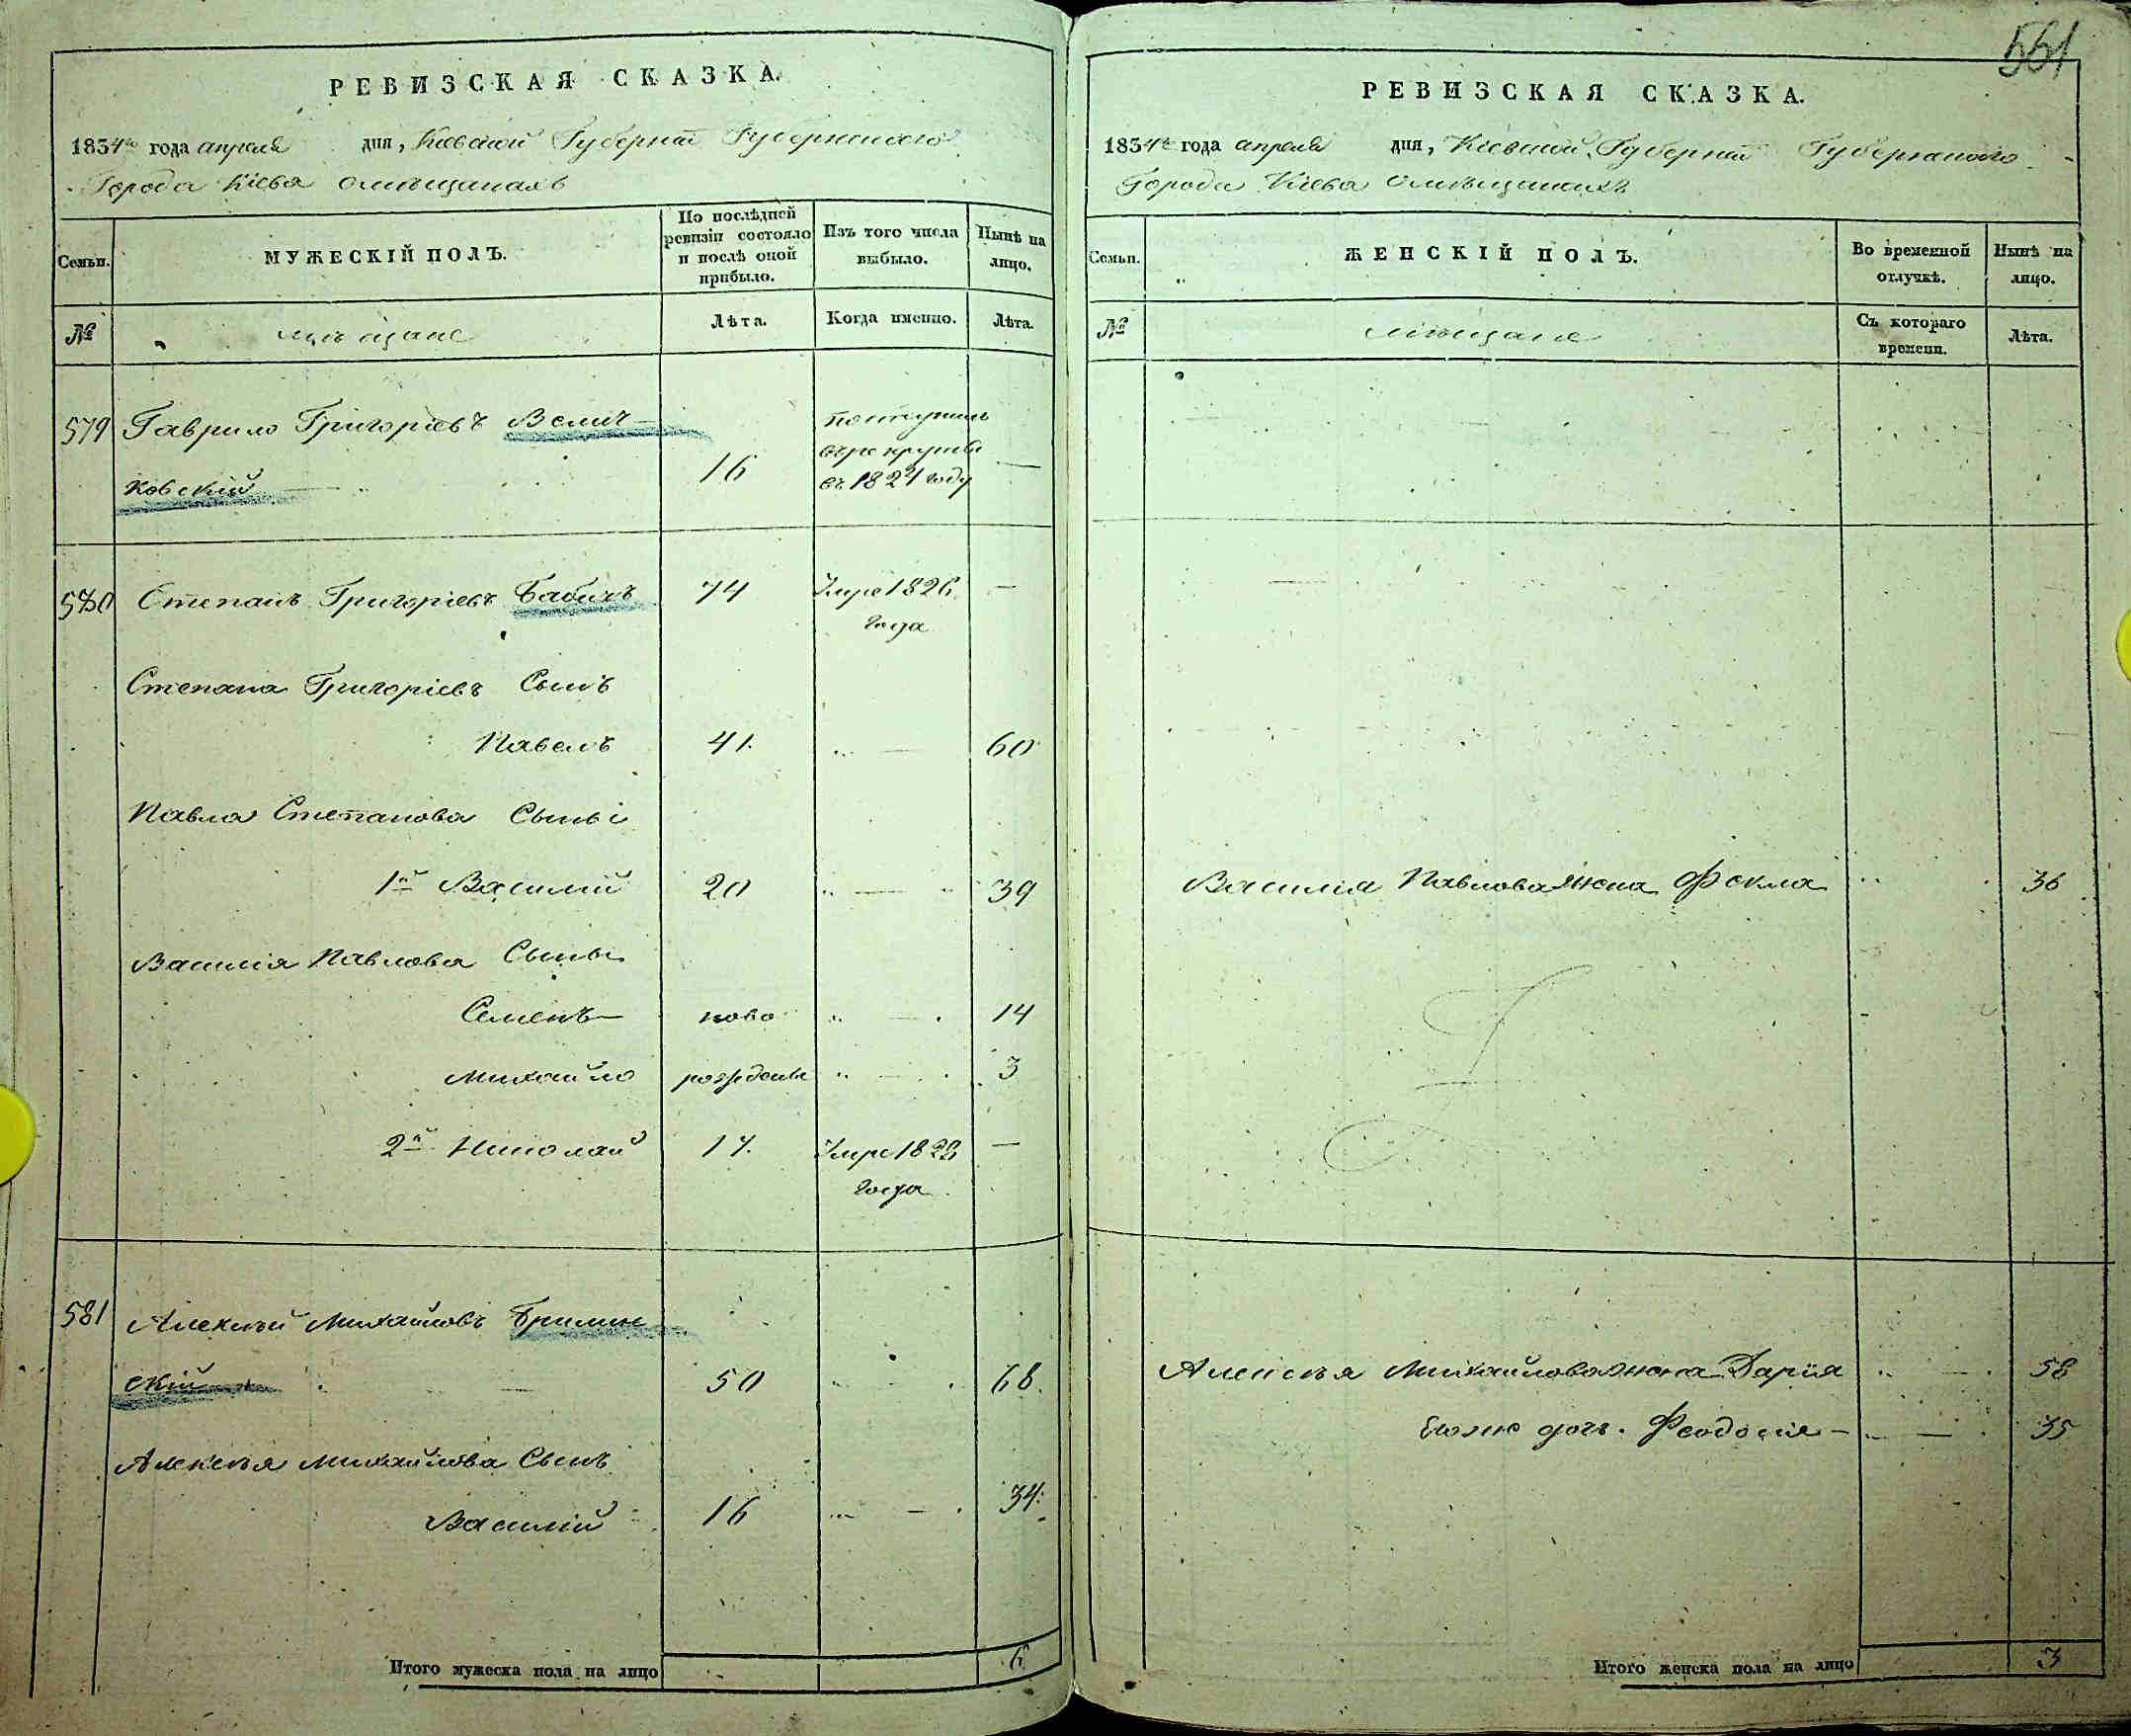 РЕВИЗСКАЯ СКАЗКА.
1834го года апреля дня, Киевской Губернии Губернского
Города Кіева омѣщанахъ
Семьи. МУЖЕСКІЙ ПОЛЪ. По послѣдней ревизіи состояло и послѣ оной прибыло. Изъ того числа выбыло. Нынѣ на лицо.
№ мѣщане Лѣта. Когда именно. Лѣта.
579 Гаврило Григоріевъ Велич-
ковскій 16 поступилъ
въ рекруты
въ 1824 году —
580 Степанъ Григоріевъ Бабичъ 74 Умре 1826 —
года
Степана Григоріевъ Сынъ
Павелъ 41. 60
Павла Степанова Сыны
1й Василій 20 39
Василія Павлова Сыны
Семенъ ново 14
Михайло рожденны 3
2й Николай 17. Умре 1828 —
года
581 Алексѣй Михайловъ Бримин
скій 50 68.
Алексѣя Михайлова Сынъ
Василій 16 34.
Итого мужеска пола на лицо 6
551
РЕВИЗСКАЯ СКАЗКА.
1834го года апреля дня, Кіевской Губерніи Губернского
Города Кіева омѣщанахъ
Семьи. ЖЕНСКІЙ ПОЛЪ. Во временной отлучкѣ. Нынѣ на лицо.
№ мѣщане Съ котораго времени. Лѣта.
Василія Павлова Жена Фекла 36
Алексѣя Михайлова жена Дарія 58
Егоже дочь. Феодосія 35
Итого женска пола на лицо 3